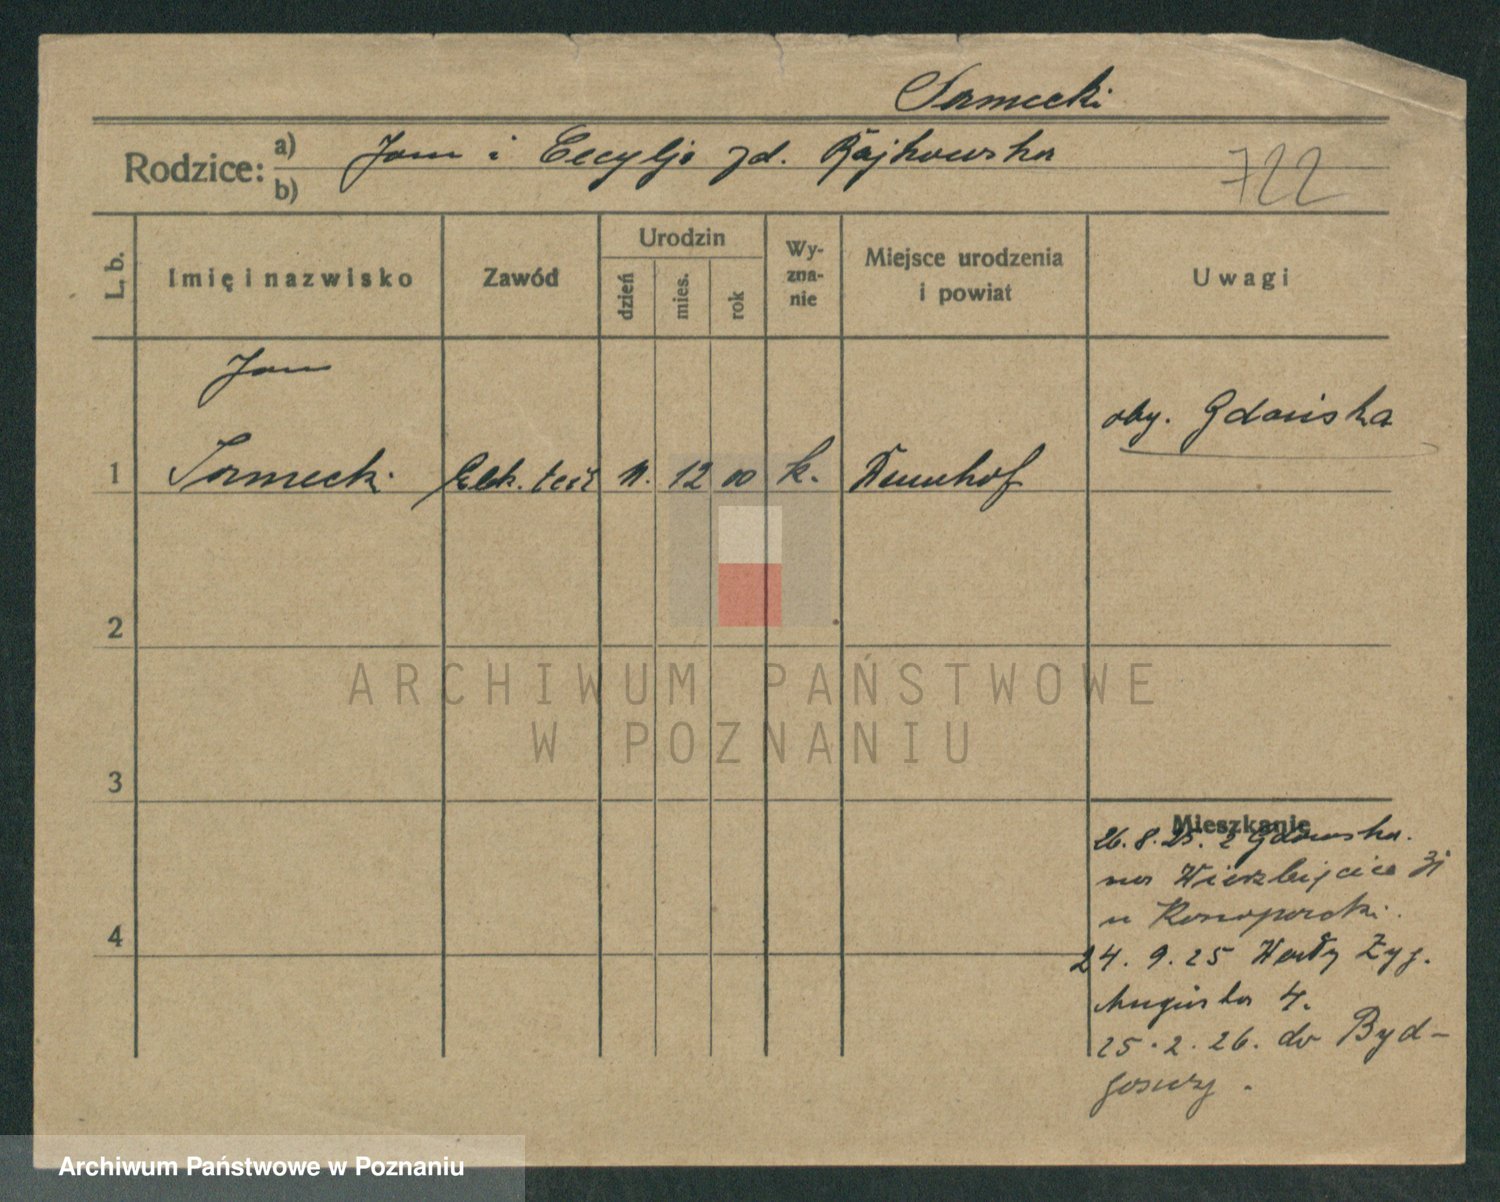 Sarnecki
Rodzice: a) Jan i Cecylja zd. Rajkowska
b)
722
L. b.
Imię i nazwisko
Zawód
Urodzin
dzień
mies.
rok
Wy-
zna-
nie
Miejsce urodzenia
i powiat
Uwagi
Jan
oby. Gdańska
1 Sarnecki Elek. 11. 12 00 k.
2
3
4
Mieszkanie
26.8.25. z Gdańska.
na Wierzbięcice
u
24. 9. 25 Wały Zyg.
Augusta 4.
25. 2. 26. do Byd-
goszczy.
ARCHIWUM PAŃSTWOWE
W POZNANIU
Archiwum Państwowe w Poznaniu